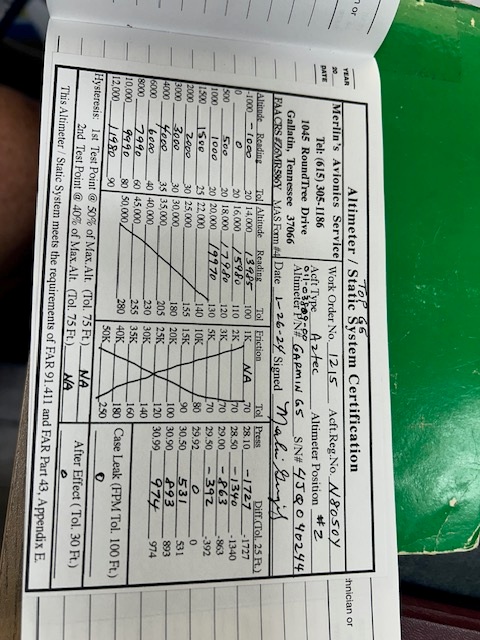 n or
YEAR
20
DATE
hnician or
TOP G5
Altimeter / Static System Certification
Merlin's Avionics Service Work Order No. 1215 Acft.Reg.No. N8050Y
Tel: (615) 305-1186 Acft Type Aztec Altimeter Position #2
1045 RoundTree Drive 011-03809-00
Gallatin, Tennessee 37066 Altimeter P/N# GARMIN G5 S/N# 4JQ040244
MAS Form #4 Date 1-26-24 Signed
Altitude Reading Tol Altitude Reading Tol Friction Tol Press Diff.(Tol. 25 Ft.)
-1000 -1000 20 14,000 13985 100 1K NA 70 28.10 -1727 -1727
0 0 20 16,000 15980 110 2K 70 28.50 -1340 -1340
500 500 20 18,000 17980 120 3K 70 29.00 -863 -863
1000 1000 20 20,000 19970 130 5K 70 29.50 -392 -392
1500 1500 25 22,000 140 10K 80 29.92 0 0
2000 2000 30 25,000 155 15K 90 30.50 531 531
3000 3000 30 30,000 180 20K 100 30.90 893 893
4000 4000 35 35,000 205 25K 120 30.99 974 974
6000 6000 40 40,000 230 30K 140
8000 7990 60 45,000 255 35K 160
10,000 9990 80 50,000 280 40K 180 Case Leak (FPM Tol. 100 Ft.)
12,000 11980 90 50K 250 0
Hysteresis: 1st Test Point @ 50% of Max. Alt. (Tol. 75 Ft.) NA After Effect (Tol. 30 Ft.)
2nd Test Point @ 40% of Max. Alt. (Tol. 75 Ft.) NA 0
This Altimeter / Static System meets the requirements of FAR 91.411 and FAR Part 43, Appendix E.